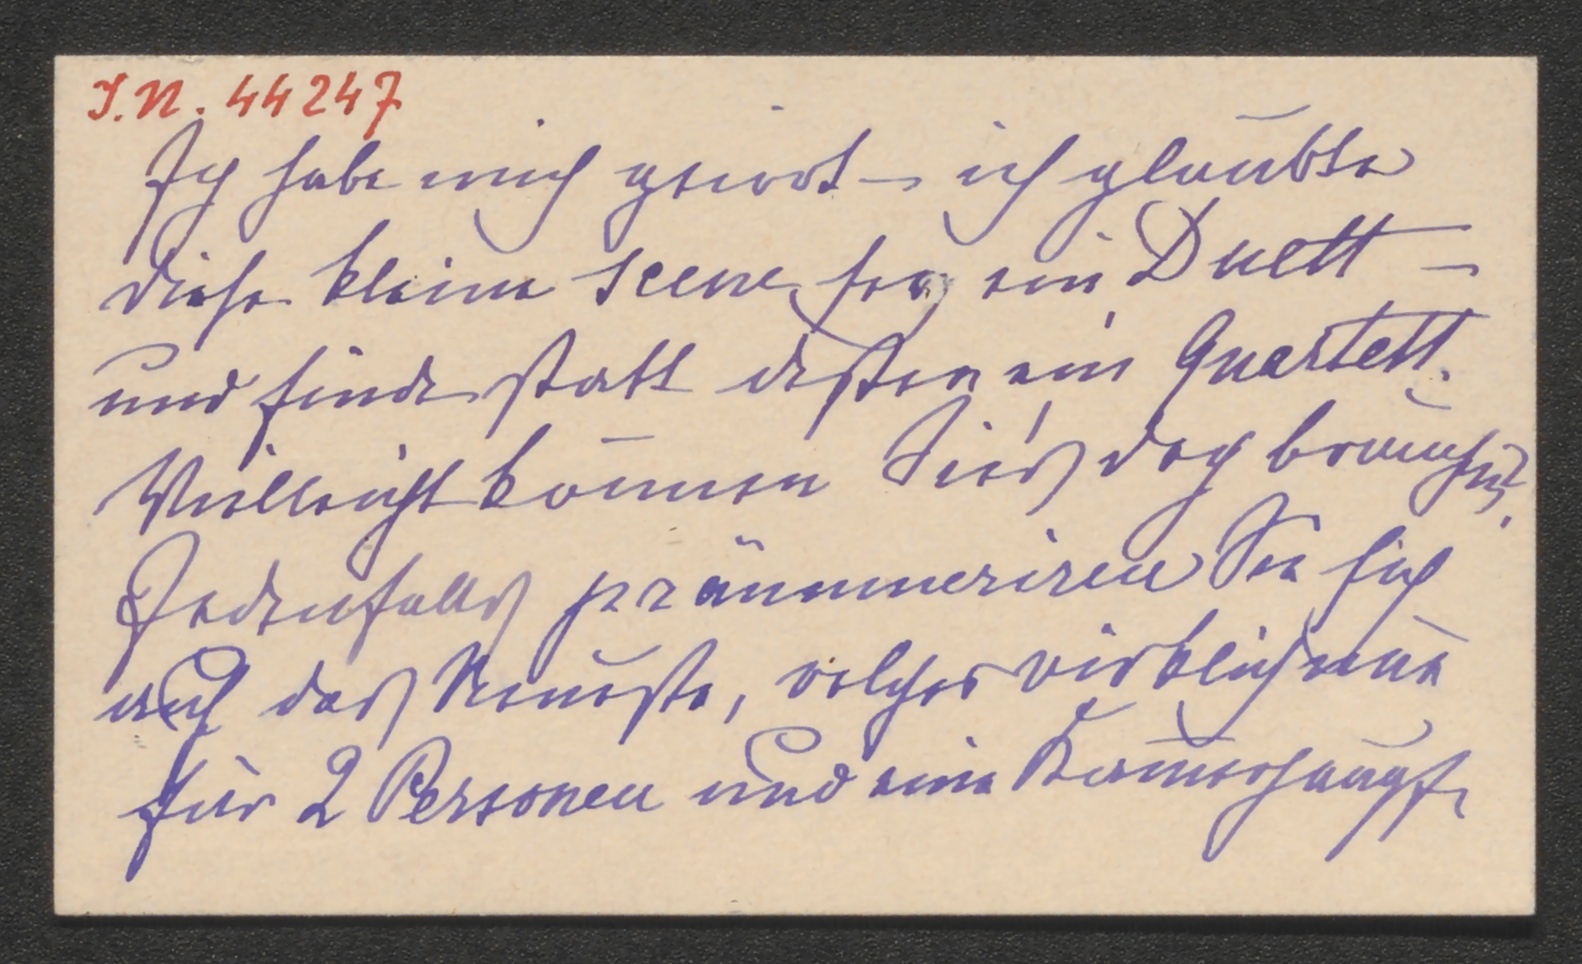 I.N. 44247
Ich habe mich geirrt – ich glaubte
diese kleine Scene sey ein Duett –
und finde statt dessen ein Quartett.
Vielleicht können Sie's doch brauchen?
Jedenfalls pränumeriren Sie sich
auf das Neueste, welches wirklich nur
für 2 Personen und eine